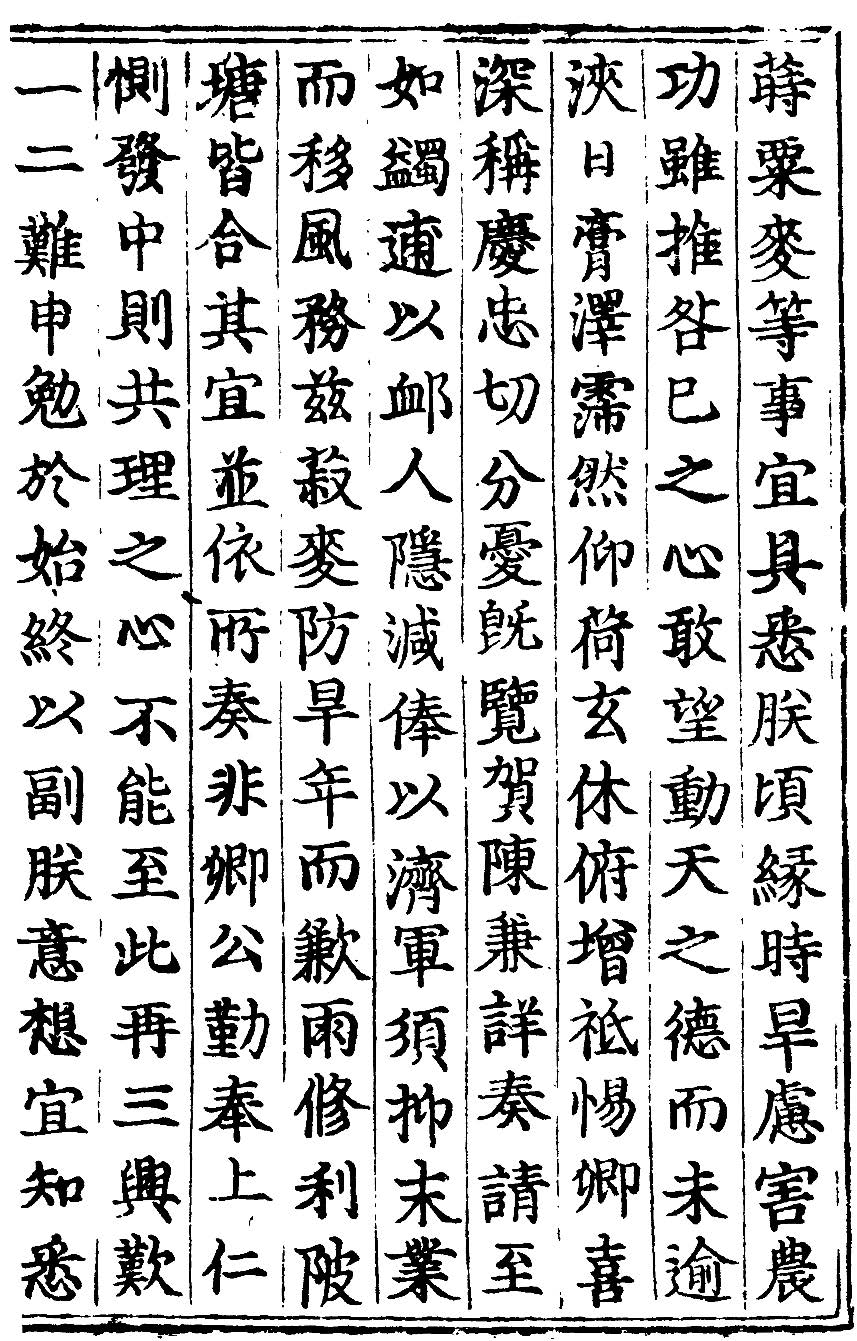 蒔粟麥等事宜具悉朕頃緣時旱慮害農
功雖推咎已之心敢望動天之德而未逾
浹日膏澤霈然仰荷玄休俯增祗惕卿喜
深稱慶忠切分憂旣覽賀陳兼詳奏請至
如蠲逋以䘏人隱減俸以濟軍須抑末業
而移風務兹菽麥防旱年而歉雨修利陂
塘皆合其宜並依所奏非卿公勤奉上仁
惻發中則共理之心不能至此再三興歎
一二難申勉於始終以副朕意想宜知悉